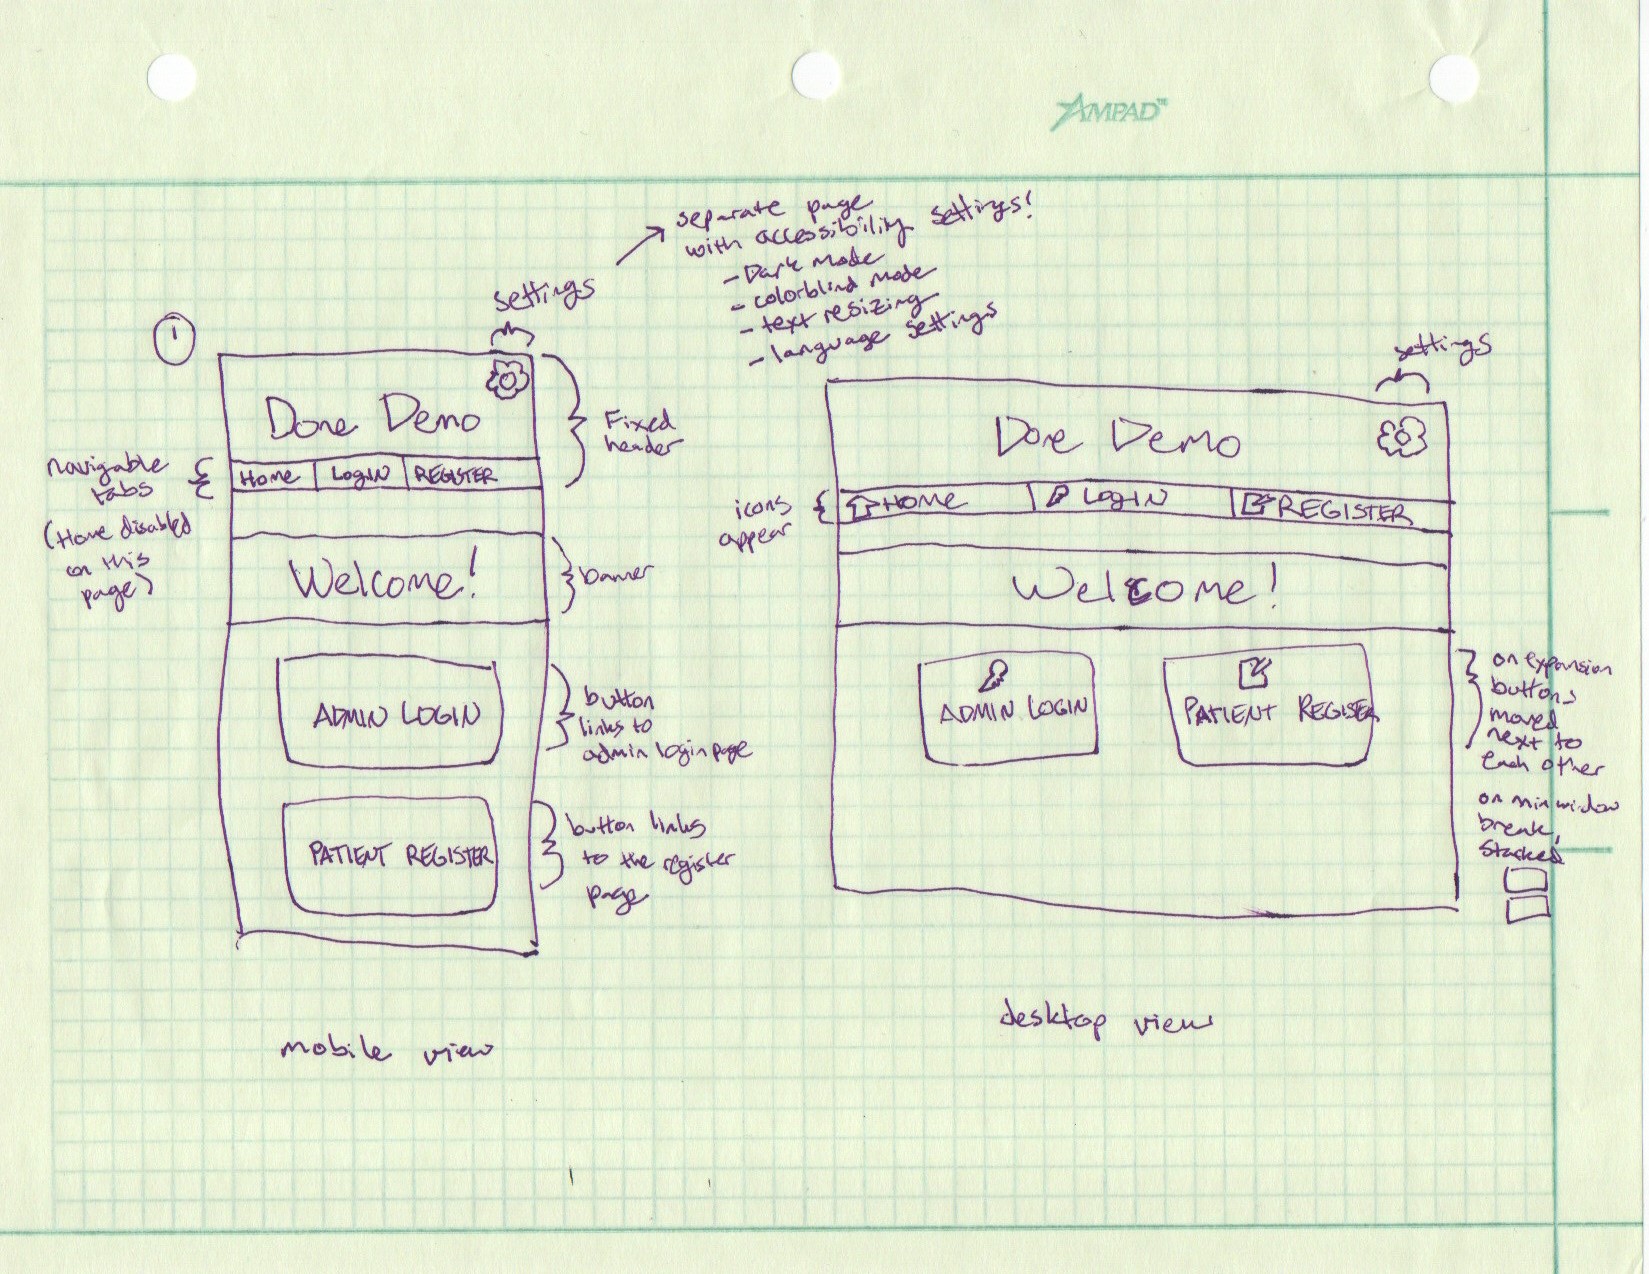 AMPAD™
separate page
with accessibility settings!
- Dark mode
- colorblind mode
- text resizing
- language settings
settings
1
Done Demo
Home
LOGIN
REGISTER
Fixed
header
navigable
tabs
(Home disabled
on this
page)
Welcome!
banner
ADMIN LOGIN
button
links to
admin login page
PATIENT REGISTER
button links
to the register
page
mobile view
settings
Done Demo
icons
appear
HOME
LOGIN
REGISTER
Welcome!
ADMIN LOGIN
PATIENT REGISTER
on expansion
buttons
moved
next to
each other
on min window
break,
stacked
desktop view